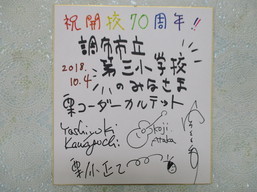 祝開校70周年!!
調布市立
第三小学校
のみなさま
2018.
10.4
栗コーダーカルテット
Yoshiyuki
Kawaguchi
Koji
Ataka
栗原正己